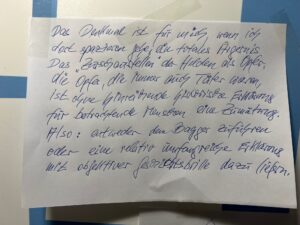 Das Denkmal ist für mich, wenn ich
dort spazieren gehe, ein totales Ärgernis.
Das "Zurschaustellen" der Helden als Opfer,
die Opfer, die immer auch Täter waren,
ist ohne hinreichende historische Erklärung
für betrachtende Menschen eine Zumutung.
Also: entweder den Bagger zuführen
oder eine relativ umfangreiche Erklärung
mit objektiver Geschichtsbrille dazu liefern.